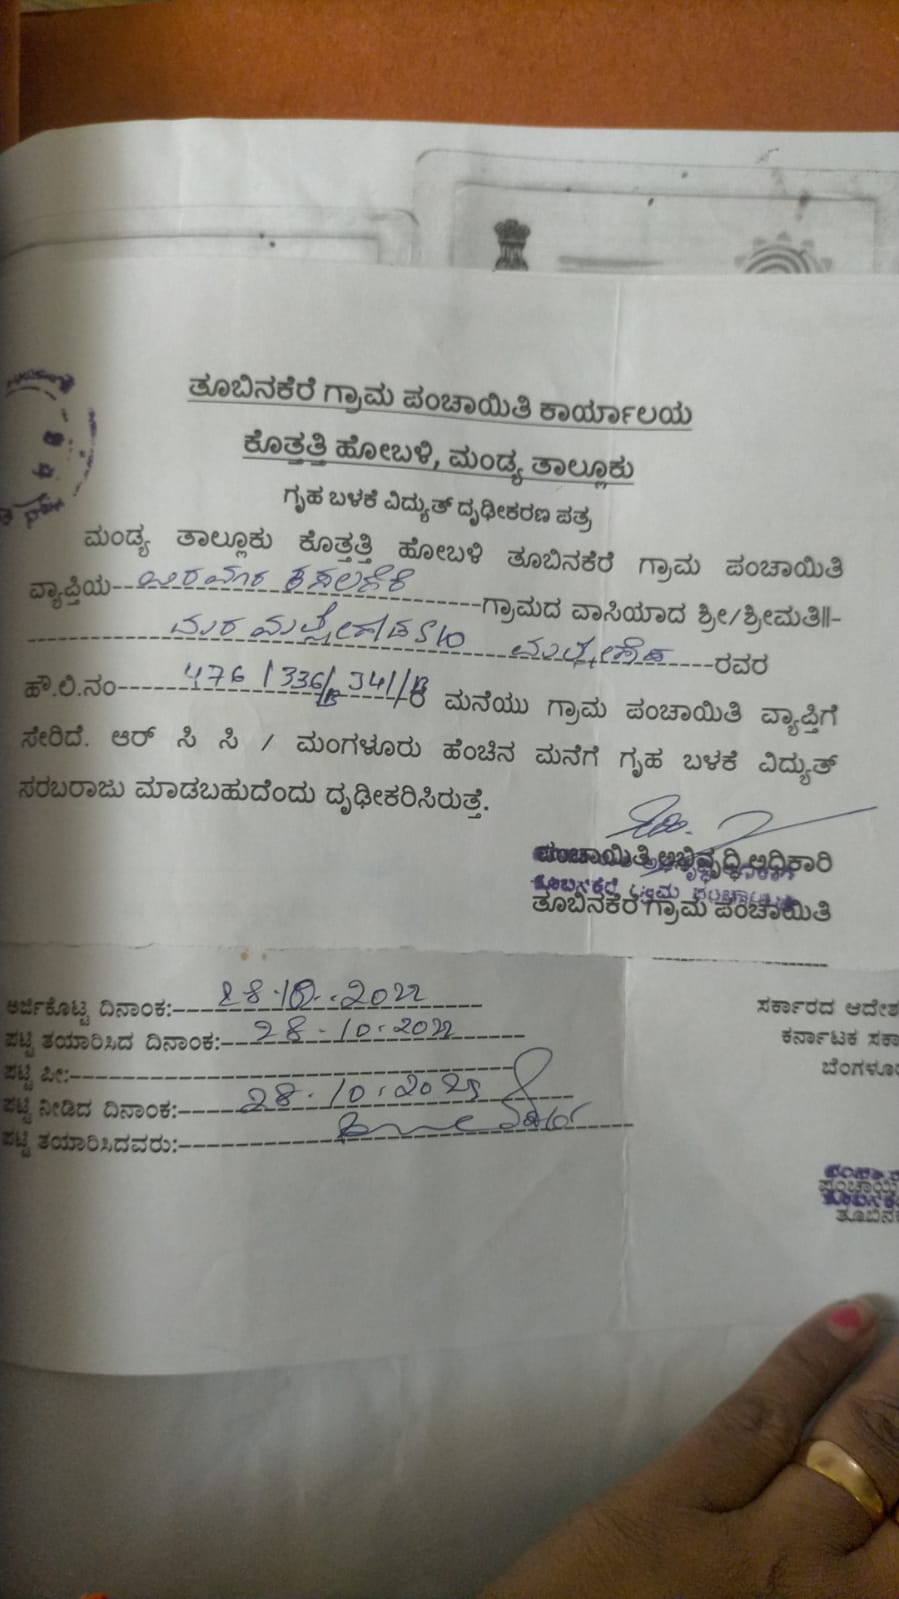 ತೂಬಿನಕೆರೆ ಗ್ರಾಮ ಪಂಚಾಯಿತಿ ಕಾರ್ಯಾಲಯ
ಕೊತ್ತತ್ತಿ ಹೋಬಳಿ, ಮಂಡ್ಯ ತಾಲ್ಲೂಕು
ಗೃಹ ಬಳಕೆ ವಿದ್ಯುತ್ ದೃಢೀಕರಣ ಪತ್ರ
ಮಂಡ್ಯ ತಾಲ್ಲೂಕು ಕೊತ್ತತ್ತಿ ಹೋಬಳಿ ತೂಬಿನಕೆರೆ ಗ್ರಾಮ ಪಂಚಾಯಿತಿ
ವ್ಯಾಪ್ತಿಯ ಗ್ರಾಮದ ವಾಸಿಯಾದ ಶ್ರೀ/ಶ್ರೀಮತಿ||-
S/o ರವರ
ಹೌ.ಲಿ.ನಂ 476 / 336/B, 341//B ರ ಮನೆಯು ಗ್ರಾಮ ಪಂಚಾಯಿತಿ ವ್ಯಾಪ್ತಿಗೆ
ಸೇರಿದೆ. ಆರ್ ಸಿ ಸಿ / ಮಂಗಳೂರು ಹೆಂಚಿನ ಮನೆಗೆ ಗೃಹ ಬಳಕೆ ವಿದ್ಯುತ್
ಸರಬರಾಜು ಮಾಡಬಹುದೆಂದು ದೃಢೀಕರಿಸಿರುತ್ತೆ.
ಪಂಚಾಯಿತಿ ಅಭಿವೃದ್ಧಿ ಅಧಿಕಾರಿ
ತೂಬಿನಕೆರೆ ಗ್ರಾಮ ಪಂಚಾಯಿತಿ
ಅರ್ಜಿಕೊಟ್ಟ ದಿನಾಂಕ: 28.10.2022
ಪಟ್ಟಿ ತಯಾರಿಸಿದ ದಿನಾಂಕ: 28.10.2022
ಪಟ್ಟಿ ಫೀ:
ಪಟ್ಟಿ ನೀಡಿದ ದಿನಾಂಕ: 28.10.2022
ಪಟ್ಟಿ ತಯಾರಿಸಿದವರು:
ಸರ್ಕಾರದ ಆದೇಶ
ಕರ್ನಾಟಕ ಸರ್ಕಾ
ಬೆಂಗಳೂರ
ಪಂಚಾಯಿ
ತೂಬಿನ